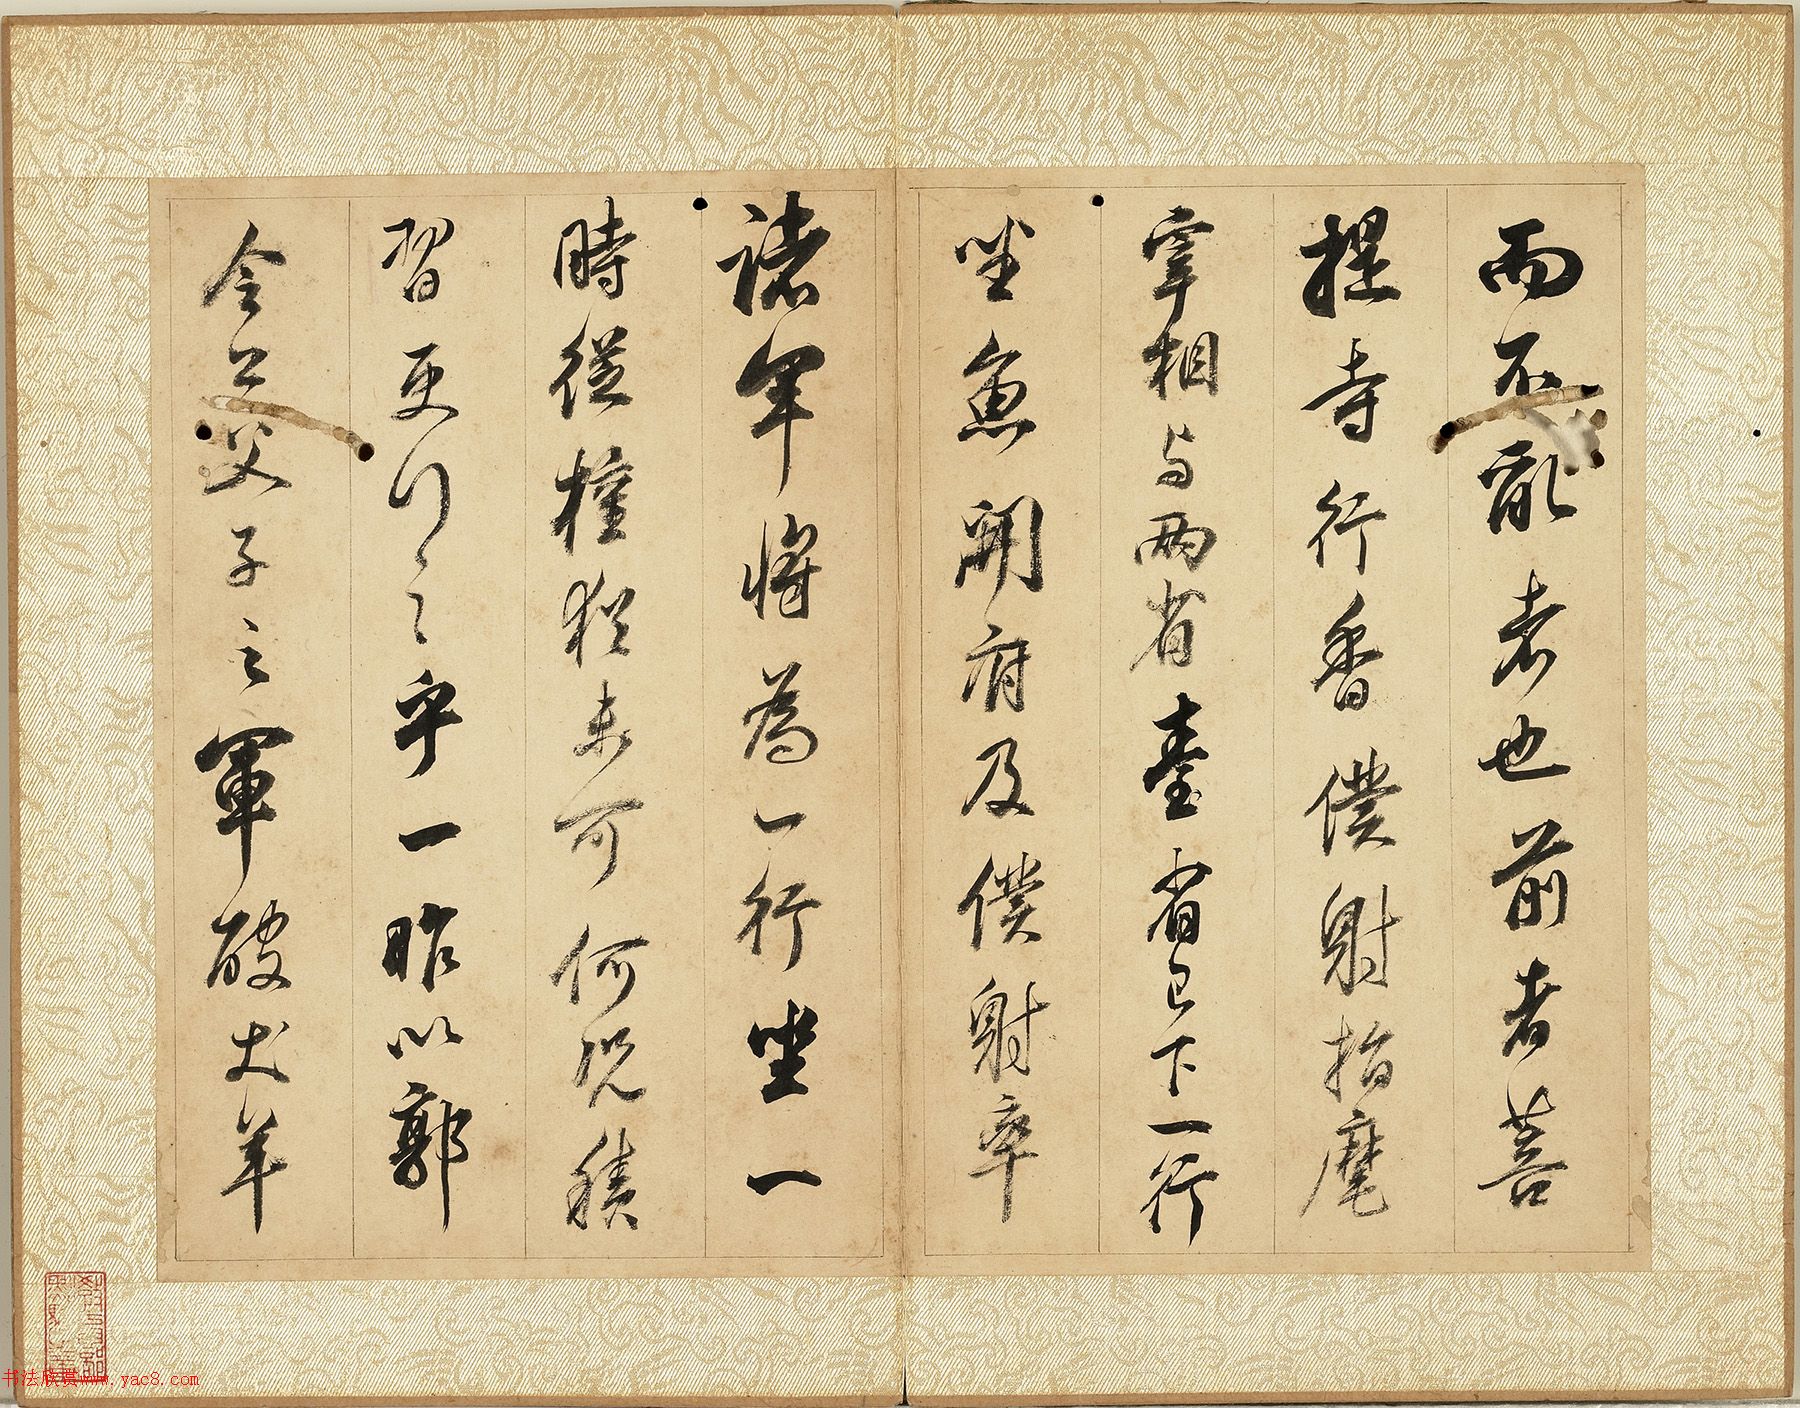 而不亂者也前者菩
提寺行香僕射指麾
宰相与兩省臺省已下一行
坐魚開府及僕射率
諸軍將為一行坐一
時從權猶未可何況積
習更行之乎一昨以郭
令公父子之軍破犬羊
书法欣赏www.yac8.com